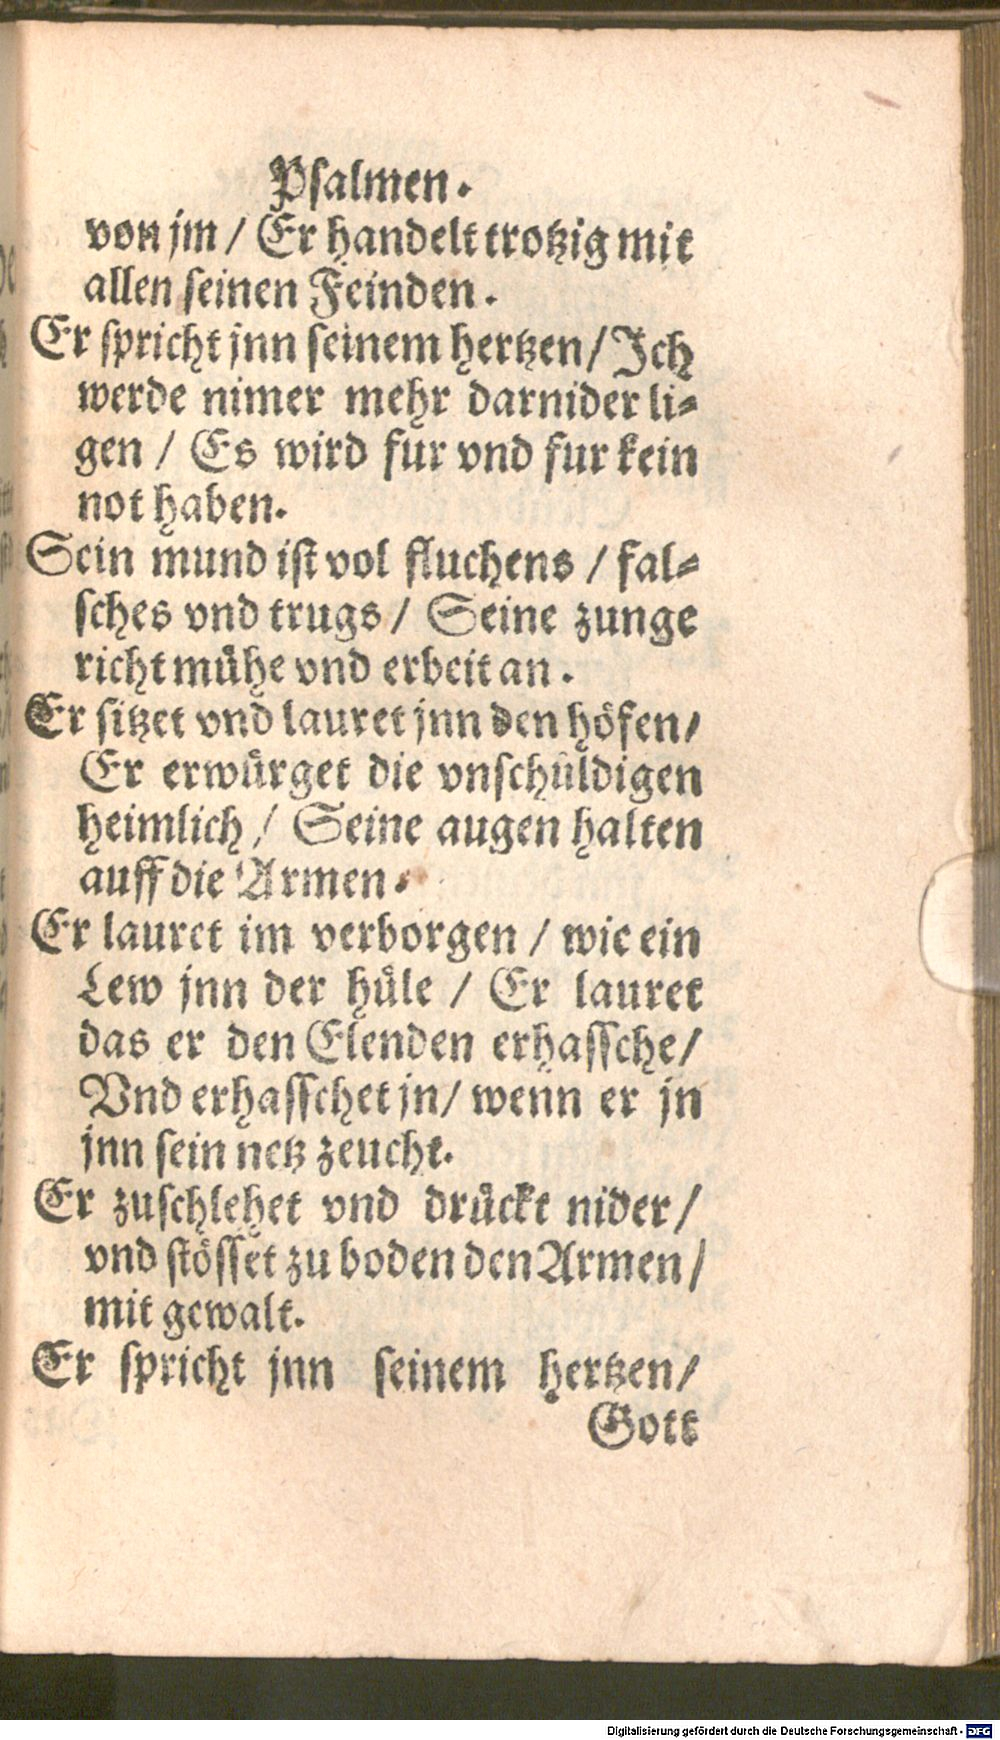 Psalmen.
von jm / Er handelt trotzig mit
allen seinen Feinden.
Er spricht jnn seinem hertzen / Ich
werde nimer mehr darnider li-
gen / Es wird fur vnd fur kein
not haben.
Sein mund ist vol fluchens / fal-
sches vnd trugs / Seine zunge
richt mühe vnd erbeit an.
Er sitzet vnd lauret jnn den höfen /
Er erwürget die vnschüldigen
heimlich / Seine augen halten
auff die Armen.
Er lauret im verborgen / wie ein
Lew jnn der hüle / Er lauret
das er den Elenden erhassche /
Vnd erhasschet jn / wenn er jn
jnn sein netz zeucht.
Er zuschlehet vnd drückt nider /
vnd stösset zu boden den Armen /
mit gewalt.
Er spricht jnn seinem hertzen /
Gott
Digitalisierung gefördert durch die Deutsche Forschungsgemeinschaft - DFG